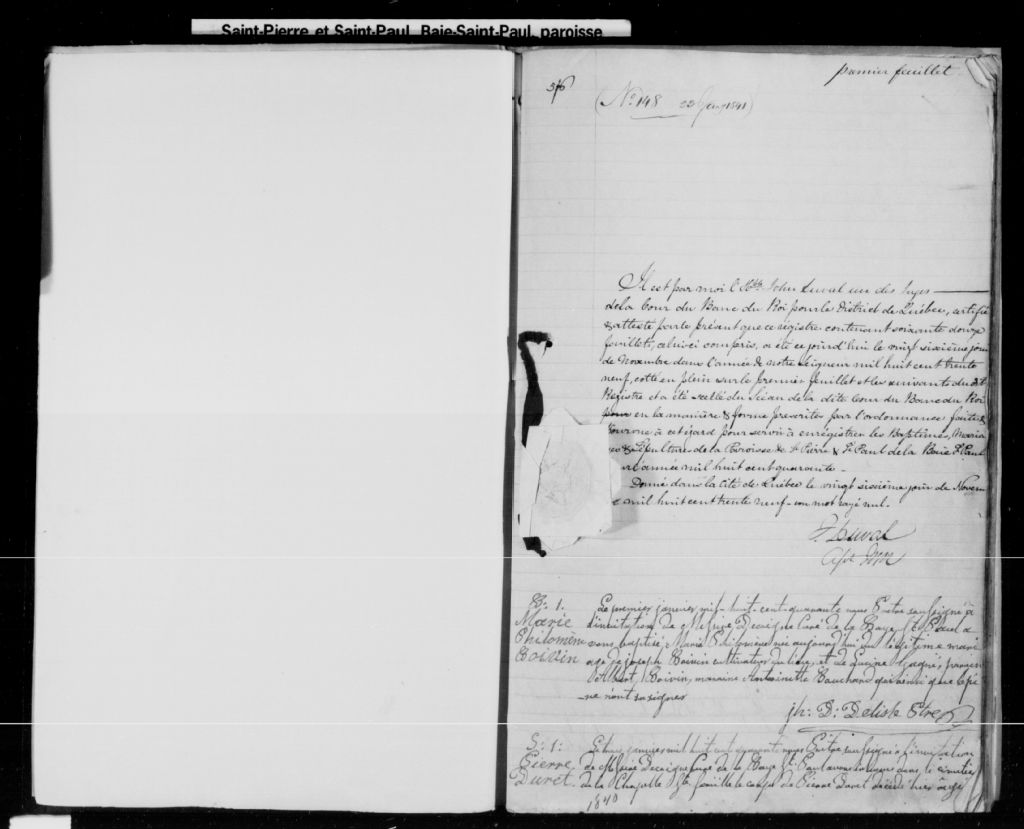 Saint-Pierre et Saint-Paul, Baie-Saint-Paul, paroisse
premier feuillet
(No 148 22 Janv 1841)
Il est par moi l'Hble John Duval un des Juges
de la Cour du Banc du Roi pour le District de Québec, certifié
& attesté par le présent que ce régistre contenant soixante douze
feuillets, celui-ci compris, a été ce jourd'hui le vingt sixième jour
de Novembre dans l'année de notre Seigneur mil huit cent trente
neuf, cotté en plein sur le premier feuillet et les suivants du dit
Régistre et a été scellé du Sceau de la dite Cour du Banc du Roi
pour en la manière & forme prescrites par l'ordonnance faite &
pourvue à cet égard pour servir à enrégistrer les Baptêmes, Maria
ges & Sépultures de la Paroisse de St Pierre & St Paul de la Baie St Paul
pour l'année mil huit cent quarante -
Donné dans la Cité de Québec le vingt sixième jour de Novem
bre mil huit cent trente neuf - un mot rayé nul.
J. Duval
B: 1.
Marie
Philomène
Boivin
Le premier janvier mil-huit-cent-quarante nous Prêtre soussigné à
l'invitation de Messire Decoigne Curé de la Baye St Paul a
vons baptisé Marie Philomène née aujourd'hui du légitime mari
age de joseph Boivin cultivateur du lieu, et de Gagné, parrain
Albert Boivin, marraine Antoinette Bouchard qui ainsi que le pè
re n'ont su signer
jh: D: Delisle Ptre
S: 1:
Pierre
Duret.
Le trois janvier mil huit cent quarante nous Prêtre soussigné à l'invitation
de Messire Decoigne Curé de la Baye St Paul avons inhumé dans le cimetière
de la Chapelle Ste famille le corps de Pierre Duret décédé hier agé
1840